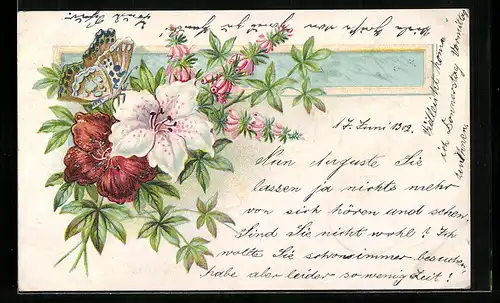 17. Juni 1902.
Nun Auguste Sie
lassen ja nichts mehr
von sich hören und sehen.
Sind Sie nicht wohl? Ich
wollte Sie schon immer besuchen,
habe aber leider so wenig Zeit!
Vielleicht komme
ich Donnerstag Vormittag
Viele Grüße von